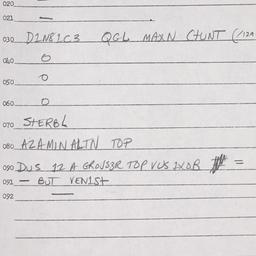 020
021 —
030 D1N81C3 QGL MAXN CHUNT (/12A
040 O
050 O
060 O
070 STERBL
080 AZAMINALTN TOP
090 DUS 12 A GROUS3R TOP VUS =
091 — BUT VENIST
092 —